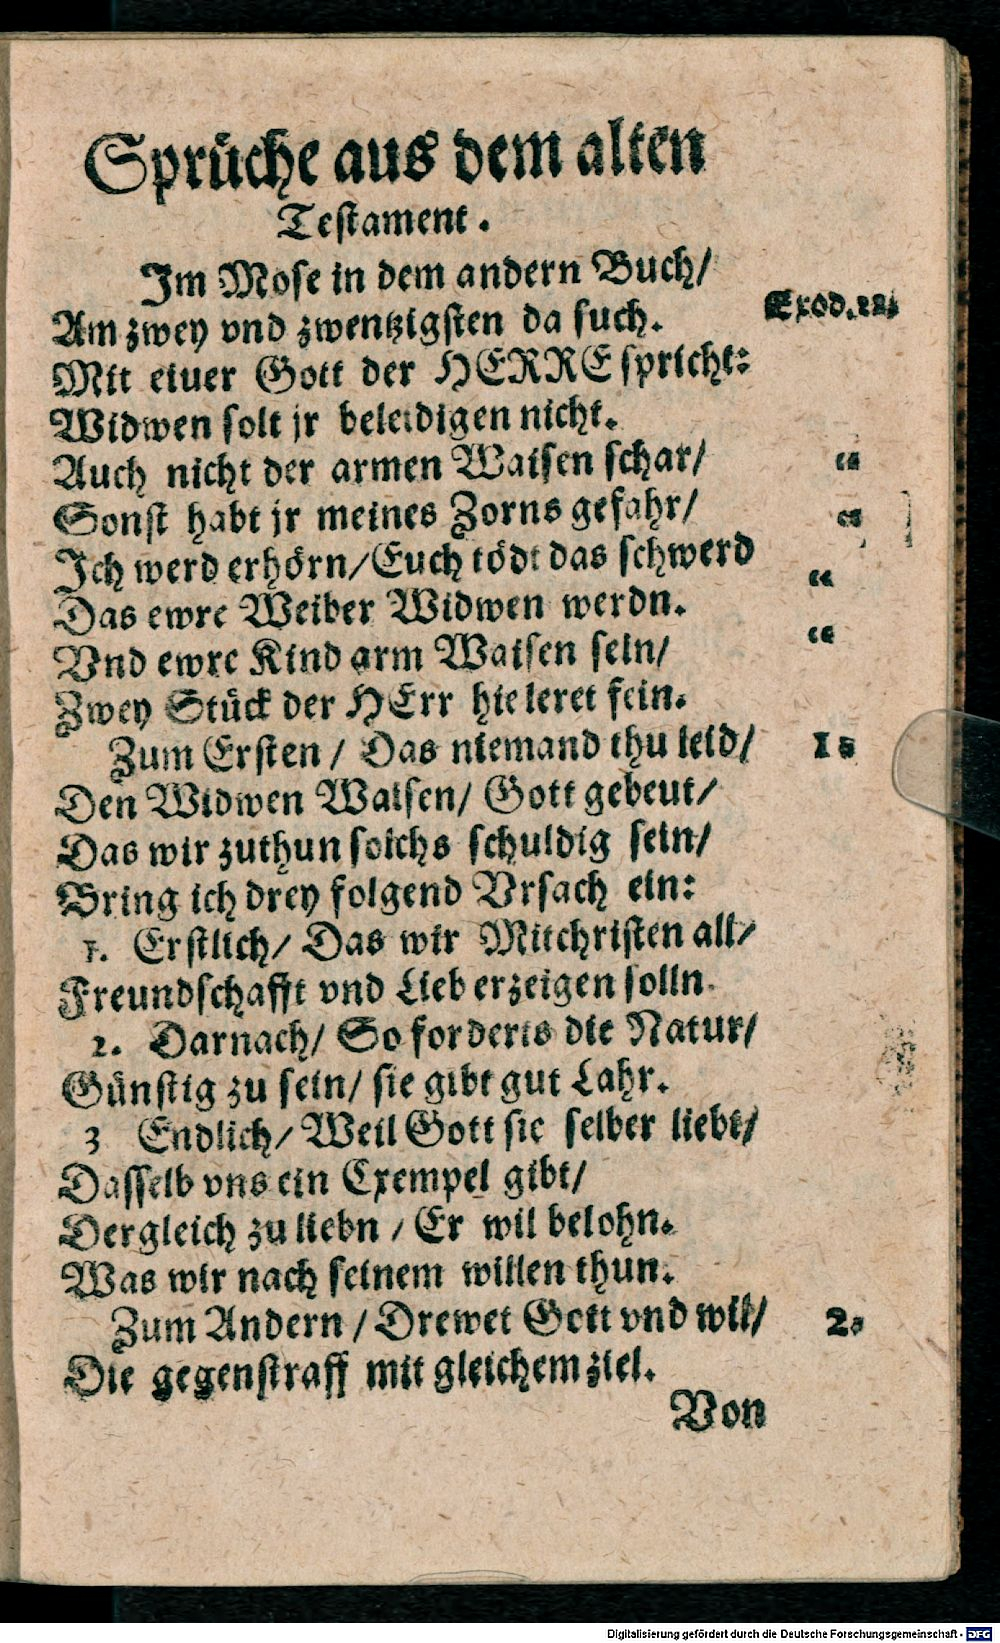 Sprüche aus dem alten
Testament.
Im Mose in dem andern Buch/
Exod. 22,
Am zwey vnd zwentzigsten da such.
Mit eiuer Gott der HERRE spricht:
Widwen solt jr beleidigen nicht.
Auch nicht der armen Waisen schar/ “
Sonst habt jr meines Zorns gefahr/ “
Ich werd erhörn/Euch tödt das schwerd
“
Das ewre Weiber Widwen werdn.
“
Vnd ewre Kind arm Waisen sein/
Zwey Stück der HErr hie leret fein.
Zum Ersten / Das niemand thu leid/ 1.
Den Widwen Waisen/ Gott gebeut/
Das wir zuthun solchs schuldig sein/
Bring ich drey folgend Vrsach ein:
1. Erstlich/ Das wir Mitchristen all/
Freundschafft vnd Lieb erzeigen solln.
2. Darnach/ So forderts die Natur/
Günstig zu sein/ sie gibt gut Lahr.
3 Endlich/ Weil Gott sie selber liebt/
Dasselb vns ein Exempel gibt/
Dergleich zu liebn / Er wil belohn.
Was wir nach seinem willen thun.
Zum Andern / Drewet Gott vnd wil/ 2.
Die gegenstraff mit gleichem ziel.
Von
Digitalisierung gefördert durch die Deutsche Forschungsgemeinschaft - DFG